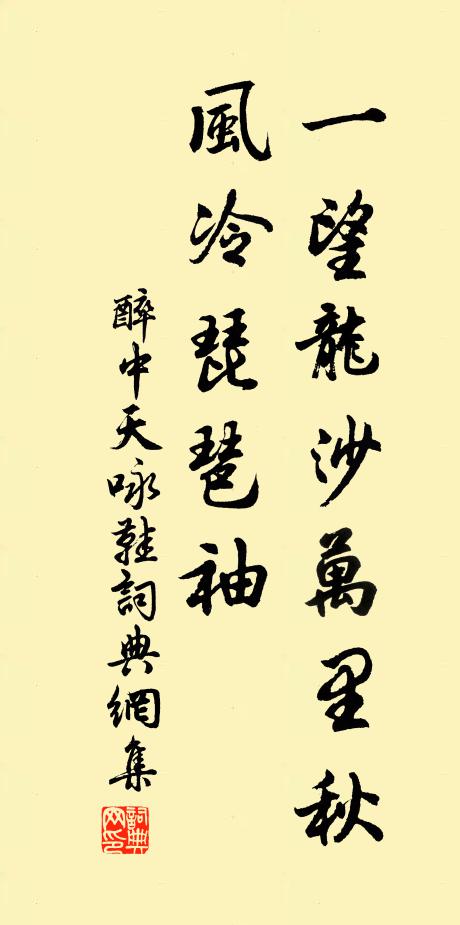 一望龍沙萬里秋
風冷琵琶袖
醉中天咏鞋詞典網集
詞典网印